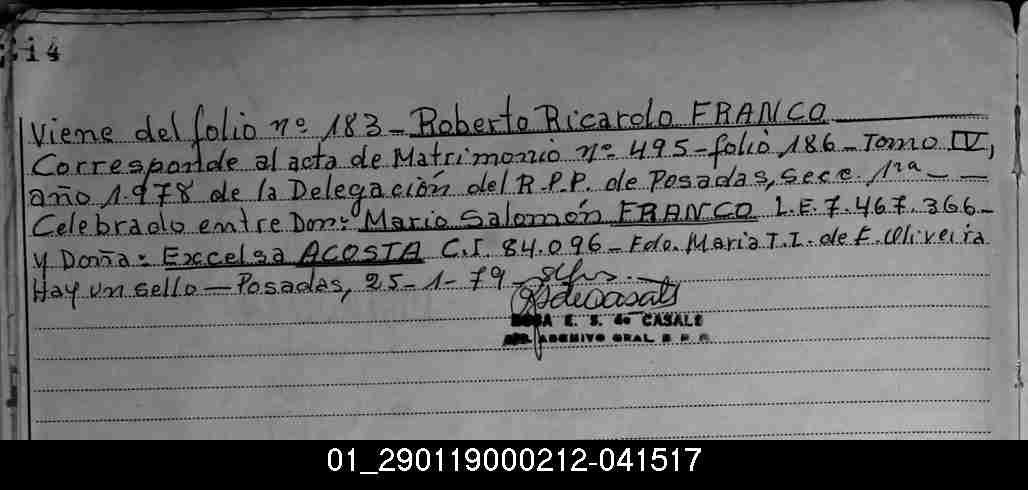 14
Viene del folio nº 183 - Roberto Ricardo FRANCO
Corresponde al acta de Matrimonio nº 495 - folio 186 - Tomo IV,
año 1.978 de la Delegación del R.P.P. de Posadas, Secc. 1ra - -
Celebrado entre Don: Mario Salomón FRANCO L.E. 7.467.366 -
y Doña: Excelsa ACOSTA C.I. 84.096 - Fdo. Maria T.I. de F. Oliveira
Hay un sello - Posadas, 25-1-79 -
E. S. de CASALS
ARCHIVO GRAL
01_290119000212-041517